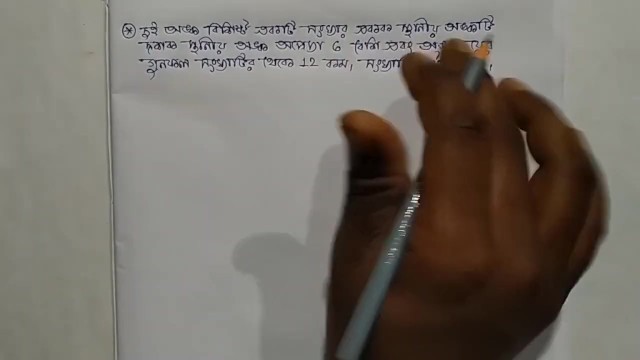 * দুই অঙ্ক বিশিষ্ট একটি সংখ্যার একক স্থানীয় অঙ্কটি
দশক স্থানীয় অঙ্ক অপেক্ষা 6 বেশি এবং
গুনফল সংখ্যাটির থেকে 12 কম,